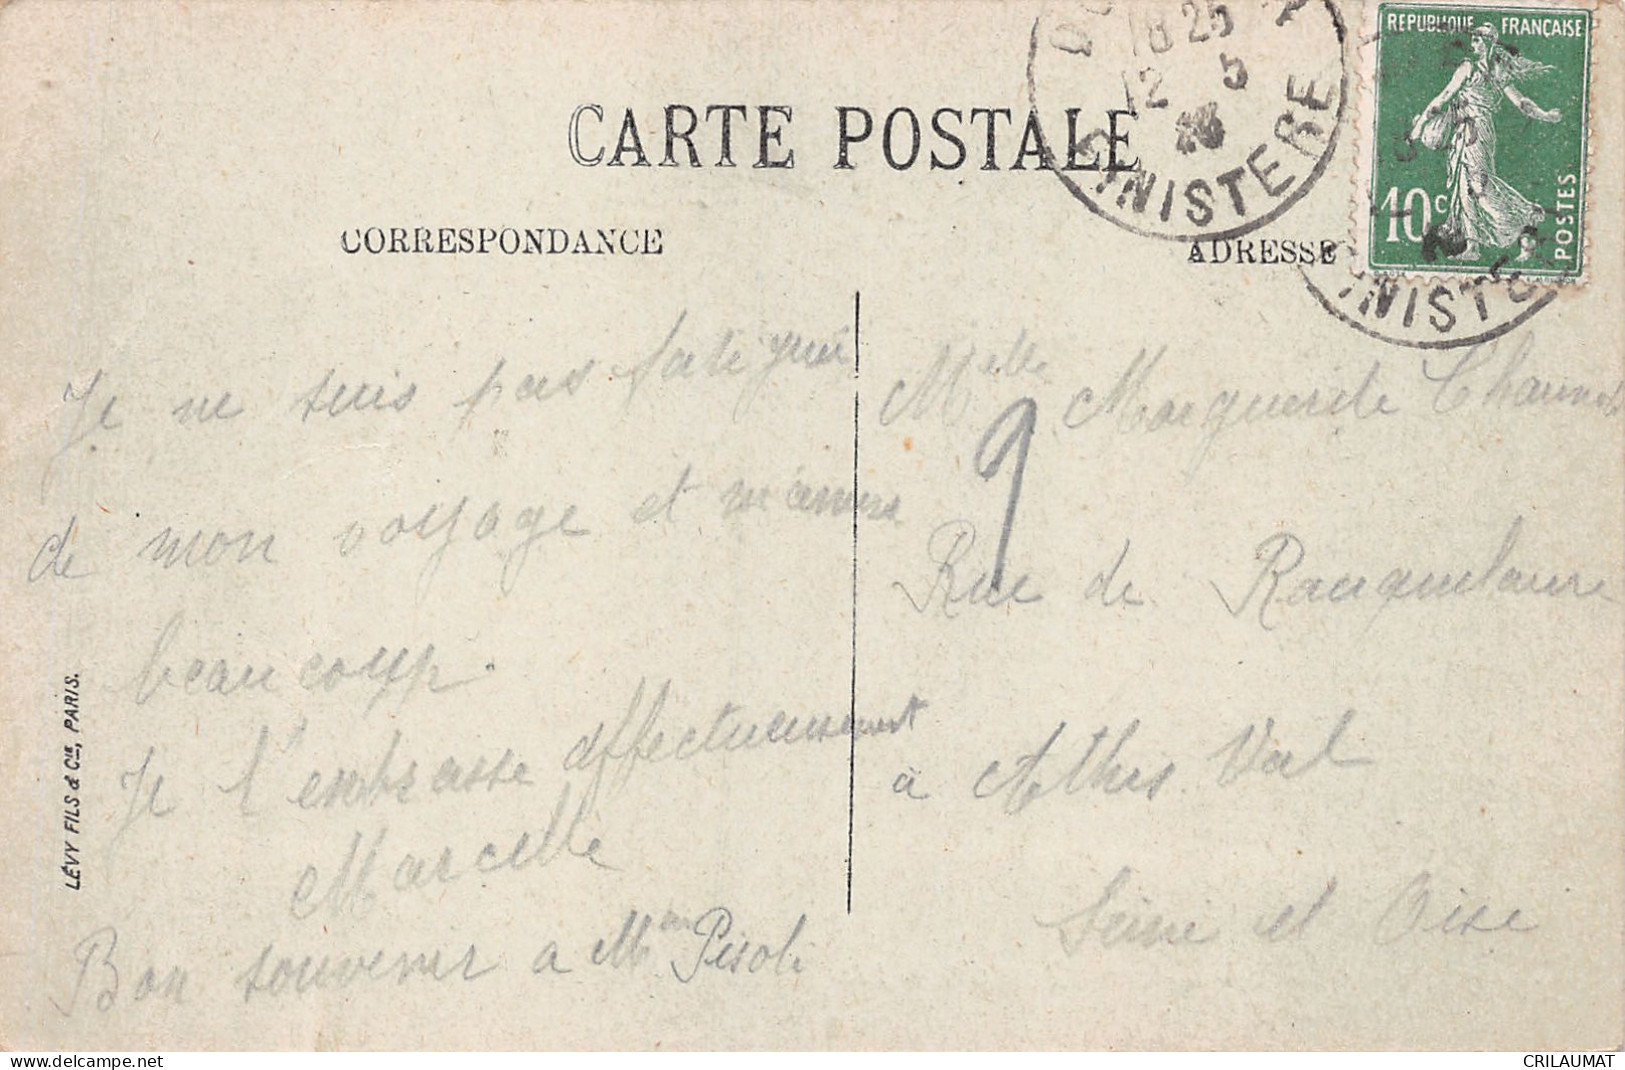 CARTE POSTALE
CORRESPONDANCE
ADRESSE
REPUBLIQUE FRANÇAISE
10c
POSTES
18 25
12 5
FINISTERE
INISTE
Je ne suis pas fatigué
de mon voyage et m'amuse
beaucoup.
Je t'embrasse affectueusement
Marcelle
Bon souvenir a Mme Pisoli
Melle Marguerite
9
Rue de
à Athis Val
Seine et Oise
LÉVY FILS & Cie, PARIS.
www.delcampe.net
CRILAUMAT